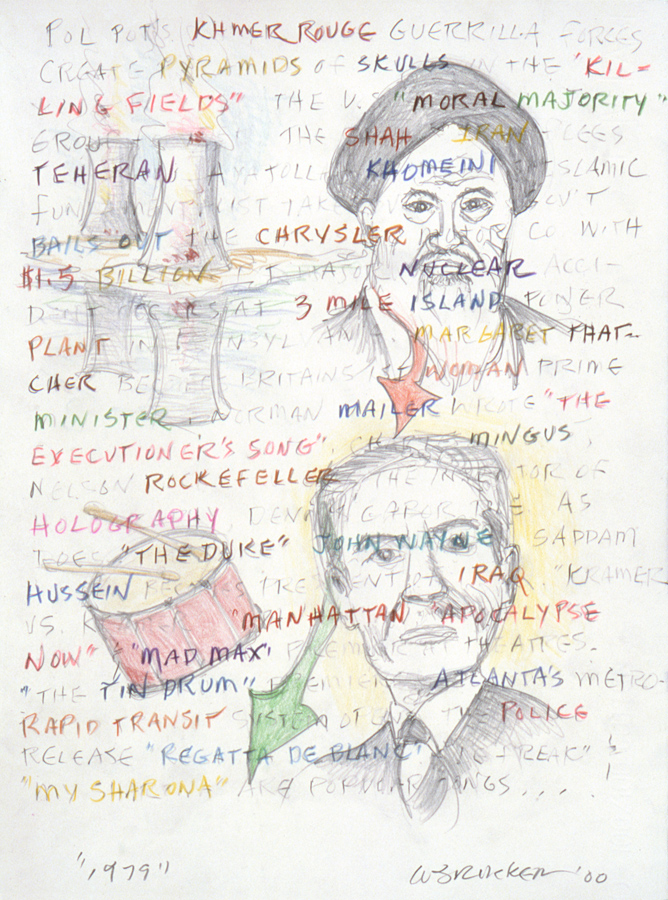 POL POT'S KHMER ROUGE GUERRILLA FORCES
CREATE PYRAMIDS OF SKULLS IN THE 'KIL-
LING FIELDS" THE U.S. "MORAL MAJORITY"
THE SHAH IRAN FLEES
TEHERAN. KHOMEINI ISLAMIC
GOV'T
BAILS "OUT THE CHRYSLER MOTOR CO WITH
$1.5 BILLION. MAJOR NUCLEAR ACCI-
DENT OCCURS AT 3 MILE ISLAND POWER
PLANT IN PENNSYLVANIA. MARGARET THAT-
CHER BECOMES BRITAINS 1ST WOMAN PRIME
MINISTER, NORMAN MAILER WROTE "THE
EXECUTIONER'S SONG", CHARLES MINGUS,
NELSON ROCKEFELLER, THE INVENTOR OF
HOLOGRAPHY, DENNIS GABER AS
DOES "THE DUKE" JOHN WAYNE SADDAM
HUSSEIN BECOMES PRESIDENT OF IRAQ. "KRAMER
VS. "MANHATTAN" "APOCALYPSE
NOW" "MAD MAX" PREMIER AT THEATRES.
"THE TIN DRUM" PREMIERES, ATLANTA'S METRO-
RAPID TRANSIT SYSTEM OPENS THE POLICE
RELEASE "REGATTA DE BLANC". "LE FREAK" &
"MY SHARONA" ARE POPULAR SONGS....!
"1979"
'00